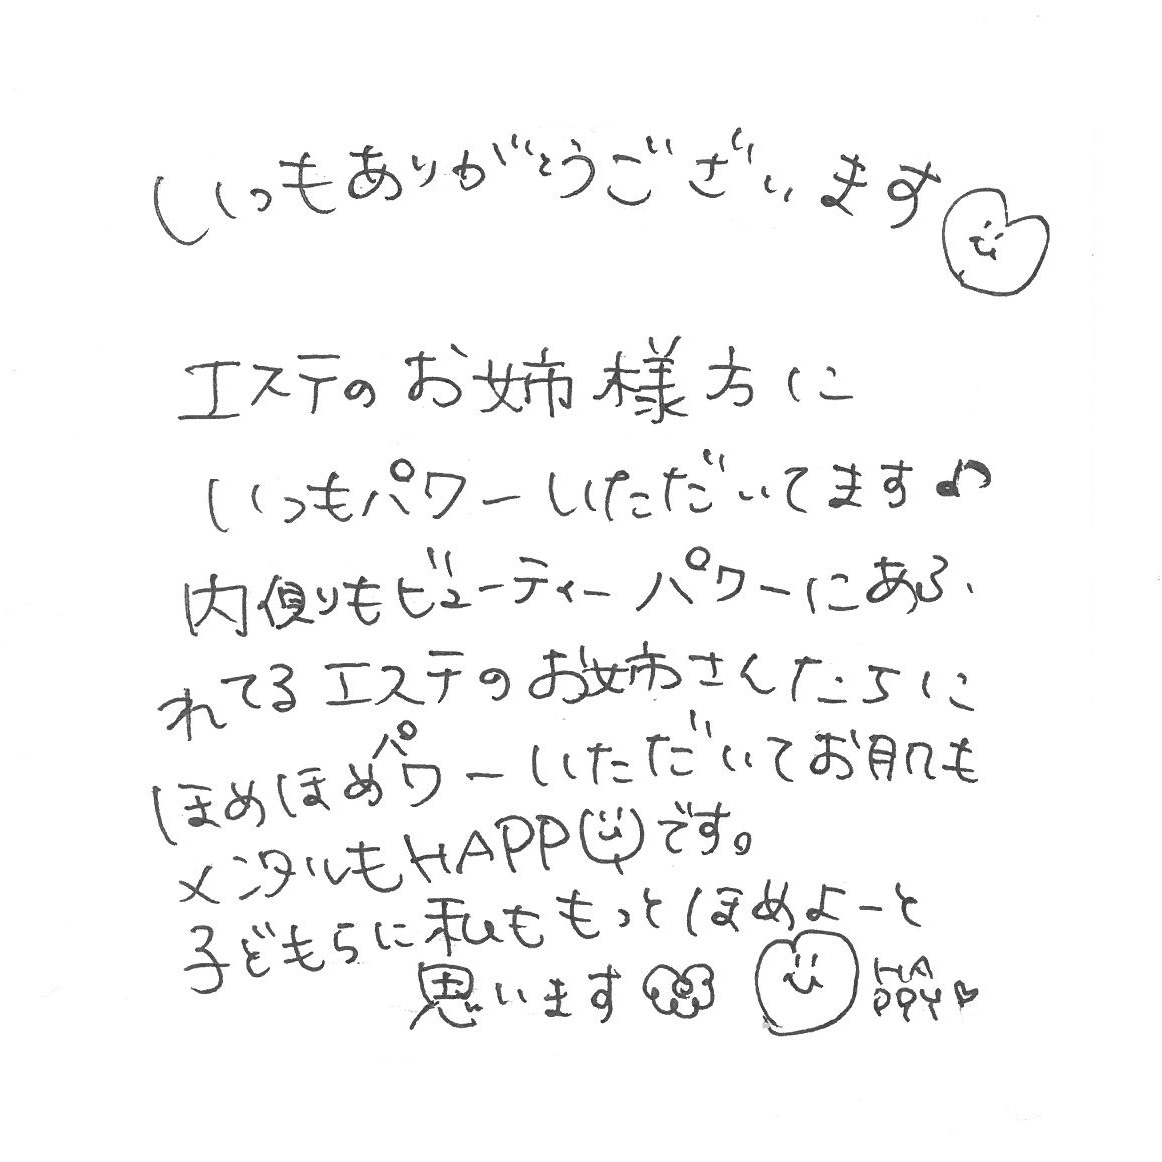 いつもありがとうございます
エステのお姉様方に
いつもパワーいただいてます♪
内側もビューティーパワーにあふ
れてるエステのお姉さんたちに
ほめほめパワーいただいてお肌も
メンタルもHAPPです。
子どもらに私ももっとほめよーと
思います
HA
PPY♡